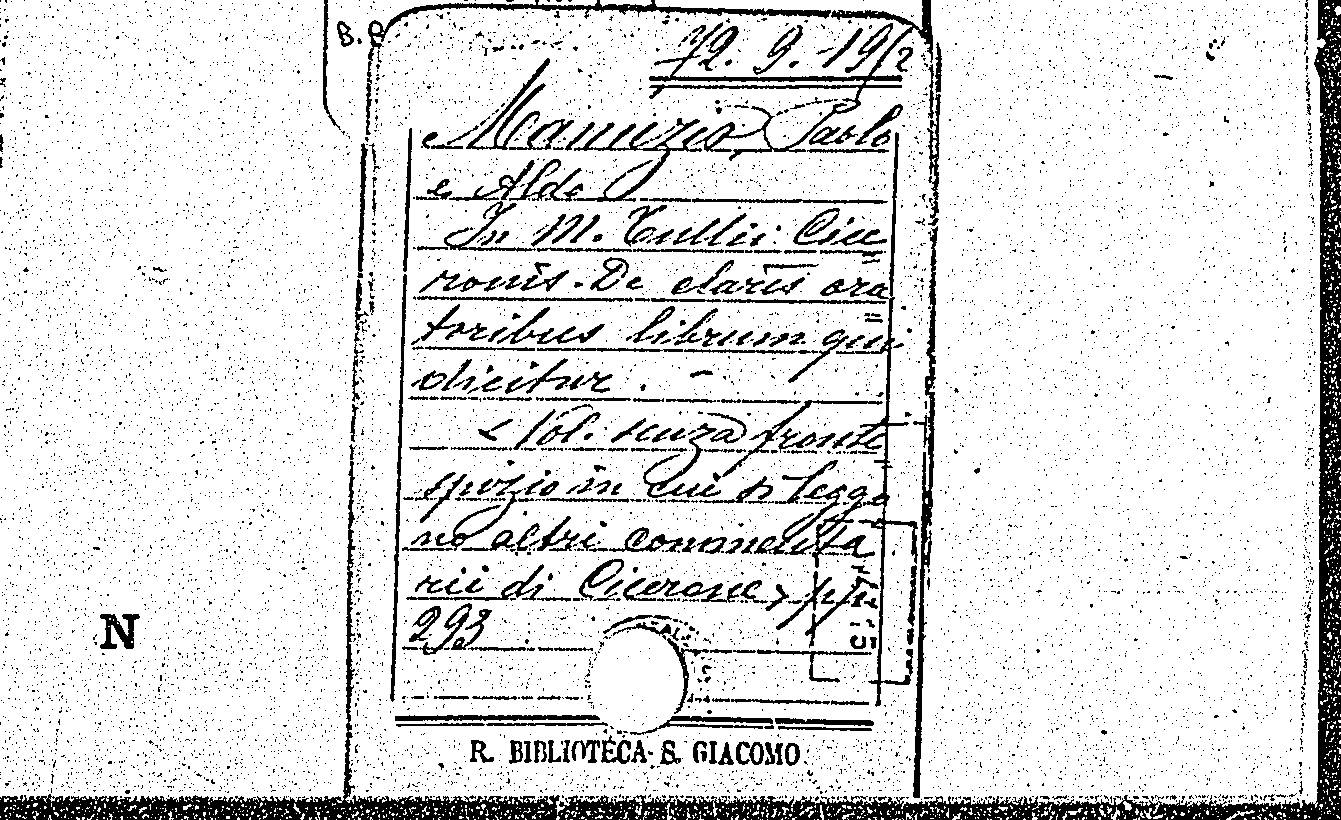 B. B
72. 9. 19/2
Manuzio, Paolo
e Aldo
In M. Tullii Cice
ronis. De claris ora
toribus librum qui
dicitur . -
< Vol. senza fronte
spizio in cui si leggo
no altri commenta
rii di Cicerone > pp.
293
N
R. BIBLIOTECA S. GIACOMO